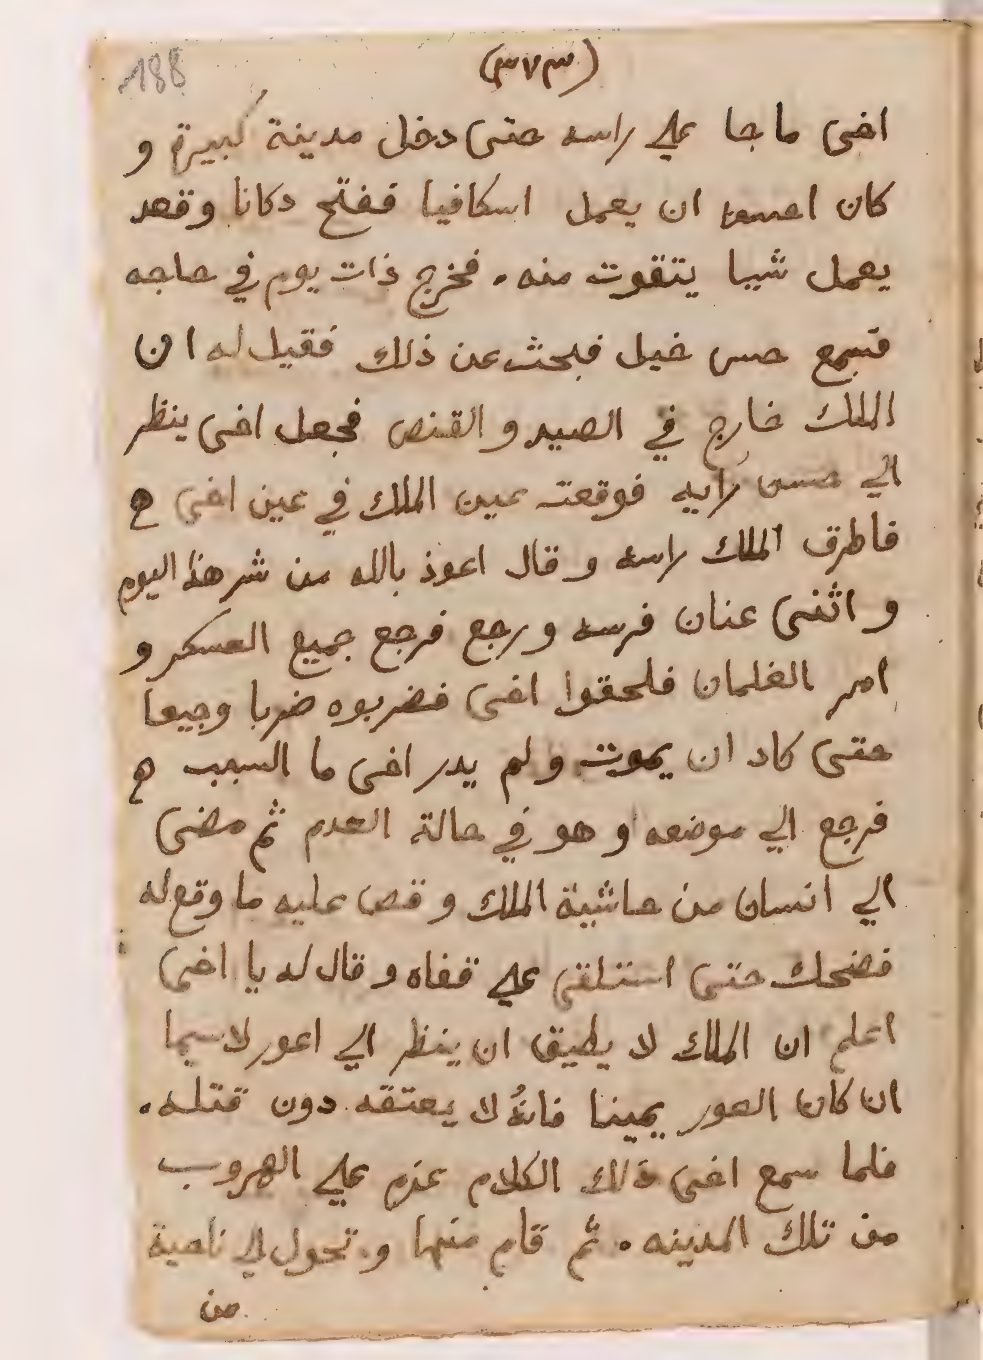 188
(٣٧٣)
اخى ماجا على راسه حتى دخل مدينة كبيرة و
كان احسن ان يعمل اسكافيا ففتح دكانا وقعد
يعمل شيبا يتقوت منه. فخرج ذات يوم في حاجه
فسمع حس خيل فبحث عن ذلك فقيل له ان
الملك خارج في الصيد و القنص فجعل اخى ينظر
الي حسن فوقعت عين الملك في عين اخى
فاطرق الملك راسه و قال اعوذ بالله من شر هذا اليوم
و اثنى عنان فرسه و رجع فرجع جميع العسكر و
امر الغلمان فلحقوا اخى فضربوه ضربا وجيعا
حتى كاد ان يموت و لم يدر اخى ما السبب
فرجع الي موضعه و هو في حالة العدم ثم مضى
الي انسان من حاشية الملك و قص عليه ما وقع له
فضحك حتى استلقى على قفاه و قال له يا اخى
اعلم ان الملك لا يطيق ان ينظر الي اعور لاسيما
ان كان العور يمينا فانهُ لا يعتقه دون قتله.
فلما سمع اخى ذلك الكلام عزم على الهروب
من تلك المدينه. ثم قام منها و تحول الي ناحية
من